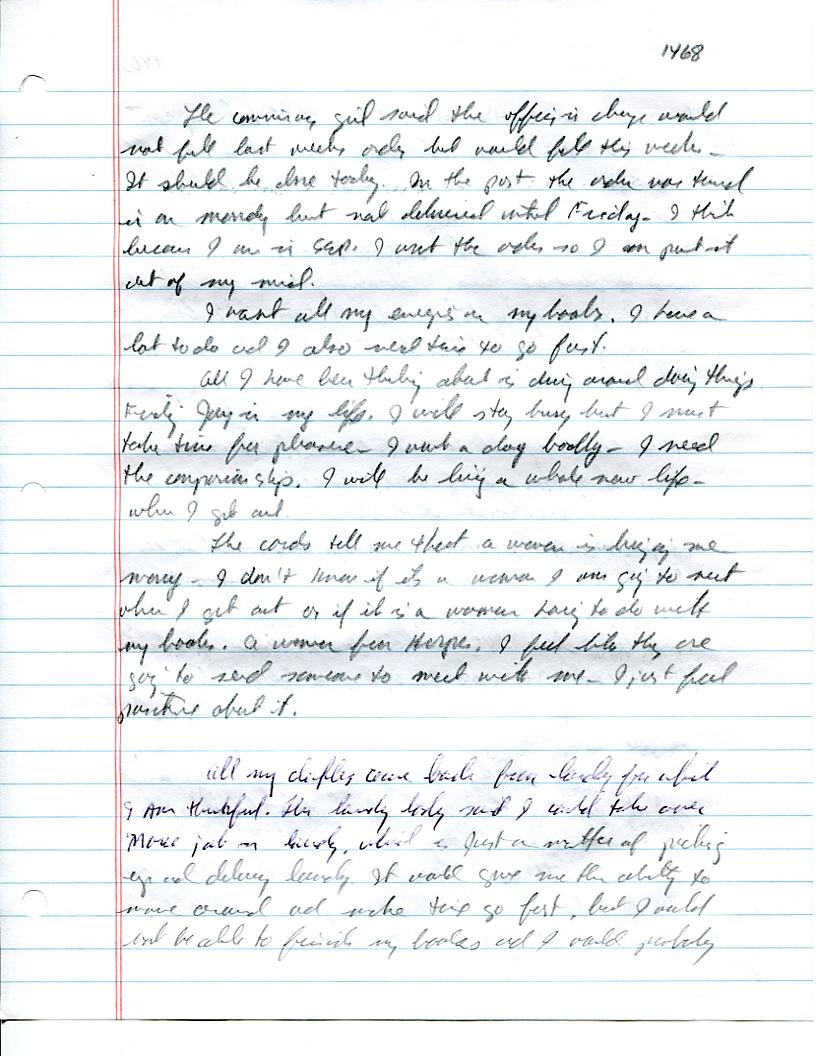 1468
The commissary girl said the officer in charge would
not fill last weeks order but would fill this weeks -
It should be done today. In the past the order was turned
in on monday but not delivered until Friday - I think
because I am in seg. I want the order so I can put it
out of my mind.
I want all my energies on my books. I have a
lot to do and I also need time to go fast.
All I have been thinking about is doing things
Finding Joy in my life. I will stay busy but I must
take time for pleasure - I want a dog badly - I need
the companionship. I will be living a whole new life -
when I get out.
The cards tell me that a woman is bringing me
money - I don't know if its a woman I am going to meet
when I get out or if it is a woman having to do with
my books. A woman from Harpers. I feel like they are
going to send someone to meet with me - I just feel
positive about it.
All my clothes came back from laundry for which
I am thankful. The laundry lady said I could take over
job in laundry, which is Just a matter of picking
up and delivery laundry. It would give me the ability to
move around and make time go fast, but I would
not be able to finish my books and I would probably